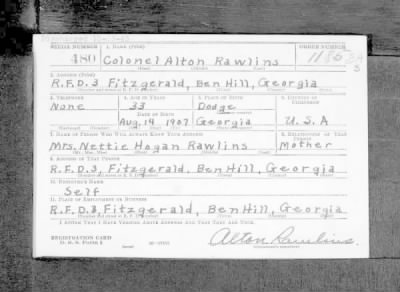 SERIAL NUMBER 1. NAME (Print) ORDER NUMBER
480 Colonel Alton Rawlins 1185
2. ADDRESS (Print)
R.F.D.3 Fitzgerald, Ben Hill, Georgia
3. TELEPHONE 4. AGE IN YEARS 5. PLACE OF BIRTH 6. COUNTRY OF CITIZENSHIP
None 33 Dodge
DATE OF BIRTH
Aug. 14 1907 Georgia U.S.A
7. NAME OF PERSON WHO WILL ALWAYS KNOW YOUR ADDRESS 8. RELATIONSHIP OF THAT PERSON
Mrs. Nettie Hogan Rawlins Mother
9. ADDRESS OF THAT PERSON
R.F.D.3, Fitzgerald, Ben Hill, Georgia
10. EMPLOYER'S NAME
Self
11. PLACE OF EMPLOYMENT OR BUSINESS
R.F.D.3, Fitzgerald, Ben Hill, Georgia
I AFFIRM THAT I HAVE VERIFIED ABOVE ANSWERS AND THAT THEY ARE TRUE.
REGISTRATION CARD
D. S. S. FORM 1
Alton Rawlins